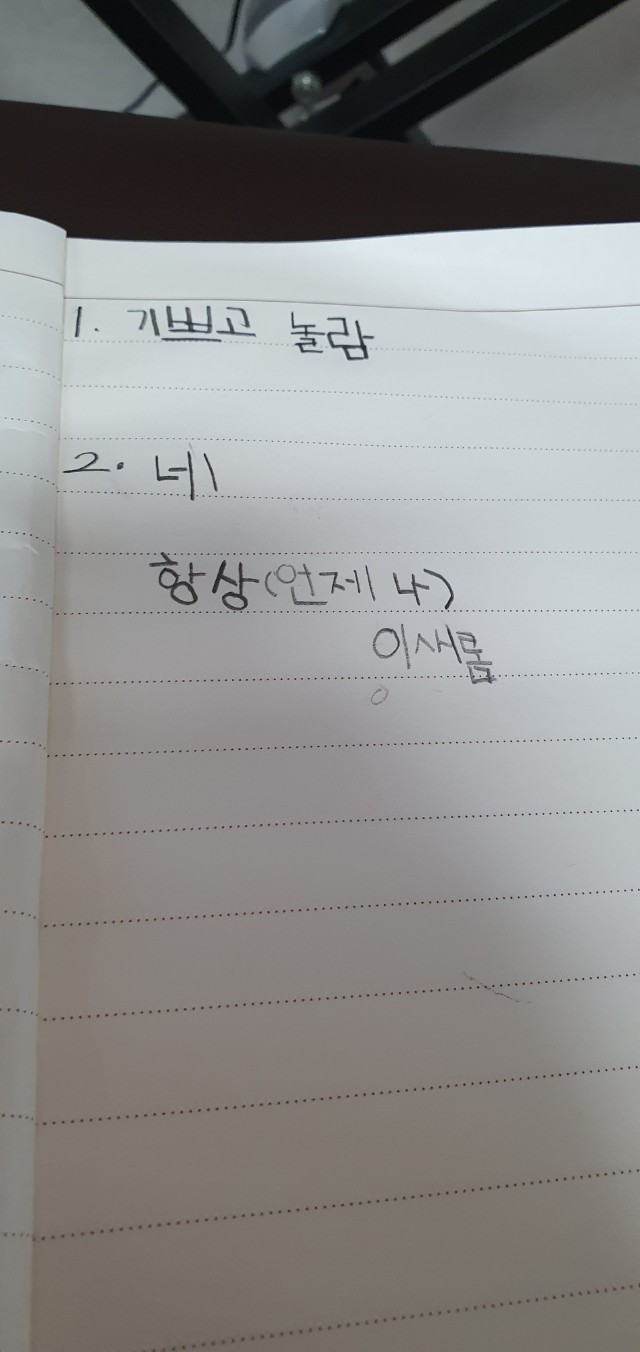 1. 기쁘고 놀람
2. 네
항상(언제나)
이새롬